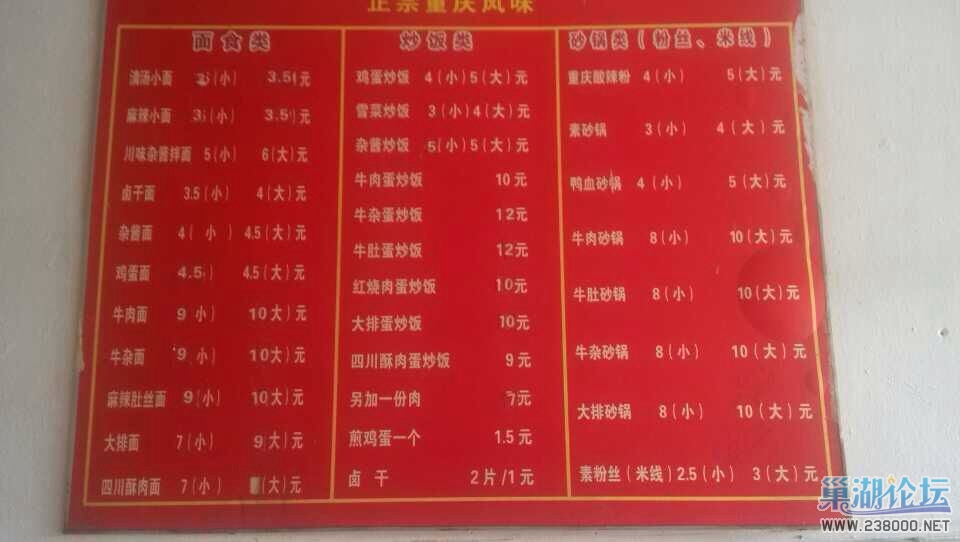 正宗重庆风味
面食类
清汤小面 (小) 3.5元
麻辣小面 3(小) 3.5元
川味杂酱拌面 5(小) 6(大)元
卤干面 3.5(小) 4(大)元
杂酱面 4(小) 4.5(大)元
鸡蛋面 4.5 4.5(大)元
牛肉面 9 小) 10大)元
牛杂面 9 小) 10大)元
麻辣肚丝面 9(小) 10大)元
大排面 7(小) 9(大)元
四川酥肉面 7(小) (大)元
炒饭类
鸡蛋炒饭 4(小)5(大)元
雪菜炒饭 3(小)4(大)元
杂酱炒饭 5(小)5(大)元
牛肉蛋炒饭 10元
牛杂蛋炒饭 12元
牛肚蛋炒饭 12元
红烧肉蛋炒饭 10元
大排蛋炒饭 10元
四川酥肉蛋炒饭 9元
另加一份肉 7元
煎鸡蛋一个 1.5元
卤干 2片/1元
砂锅类(粉丝、米线)
重庆酸辣粉 4(小) 5(大)元
素砂锅 3(小) 4(大)元
鸭血砂锅 4(小) 5(大)元
牛肉砂锅 8(小) 10(大)元
牛肚砂锅 8(小) 10(大)元
牛杂砂锅 8(小) 10(大)元
大排砂锅 8(小) 10(大)元
素粉丝(米线)2.5(小) 3(大)元
巢湖论坛
www.238000.NET